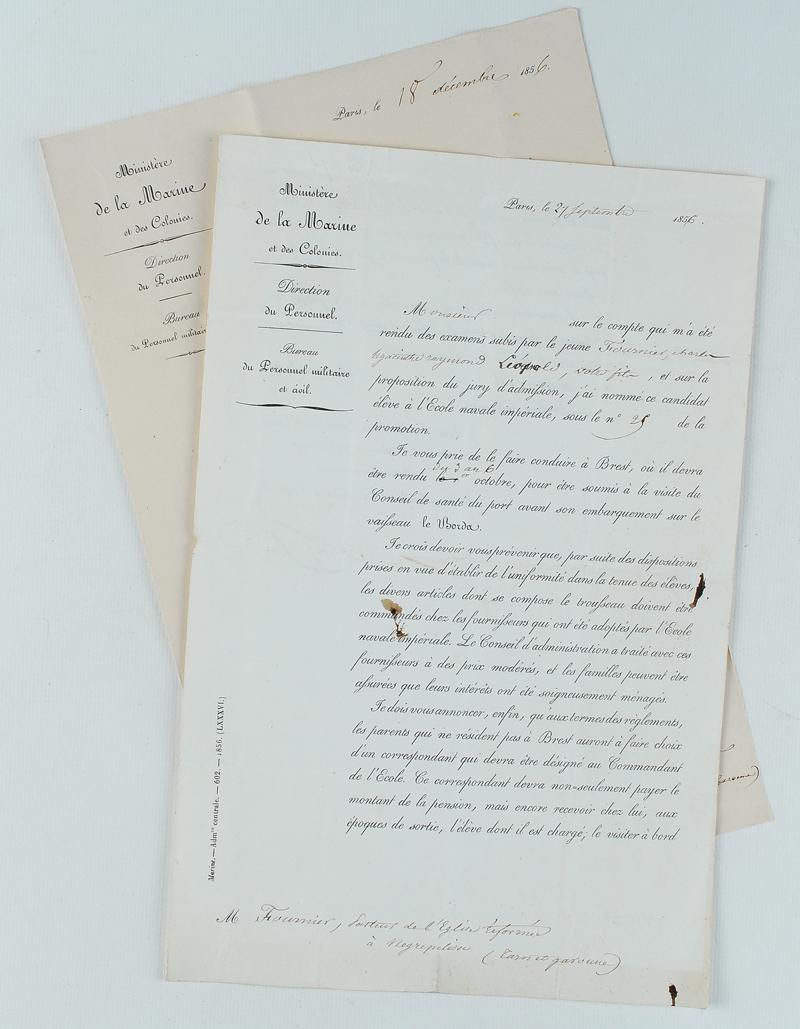 Paris, le 18 décembre 1856.
Ministère
de la Marine
et des Colonies.
Direction
du Personnel.
Bureau
du Personnel militair
Ministère
de la Marine
et des Colonies.
Direction
du Personnel.
Bureau
du Personnel militaire
et civil.
Paris, le 27 Septembre 1856.
Monsieur sur le compte qui m'a été
rendu des examens subis par le jeune Fournier, charles
hyacinthe raymond Léopold, votre fils, et sur la
proposition du jury d'admission, j'ai nommé ce candidat
élève à l'Ecole navale impériale, sous le n° 25 de la
promotion.
Je vous prie de le faire conduire à Brest, où il devra
du 3 au 6
être rendu le 1er octobre, pour être soumis à la visite du
Conseil de santé du port avant son embarquement sur le
vaisseau le Borda.
Je crois devoir vous prévenir que, par suite des dispositions
prises en vue d'établir de l'uniformité dans la tenue des élèves,
les divers articles dont se compose le trousseau doivent être
commandés chez les fournisseurs qui ont été adoptés par l'Ecole
navale impériale. Le Conseil d'administration a traité avec ces
fournisseurs à des prix modérés, et les familles peuvent être
assurées que leurs intérêts ont été soigneusement ménagés.
Je dois vous annoncer, enfin, qu'aux termes des réglements,
les parents qui ne résident pas à Brest auront à faire choix
d'un correspondant qui devra être désigné au Commandant
de l'Ecole. Ce correspondant devra non-seulement payer le
montant de la pension, mais encore recevoir chez lui, aux
époques de sortie, l'élève dont il est chargé; le visiter à bord
Marine. — Admon centrale. — 602. — 1856. (LXXXVI.)
M Fournier, Pasteur de l'Eglise réformée
à Negrepelisse (Tarn et garonne)
garonne)